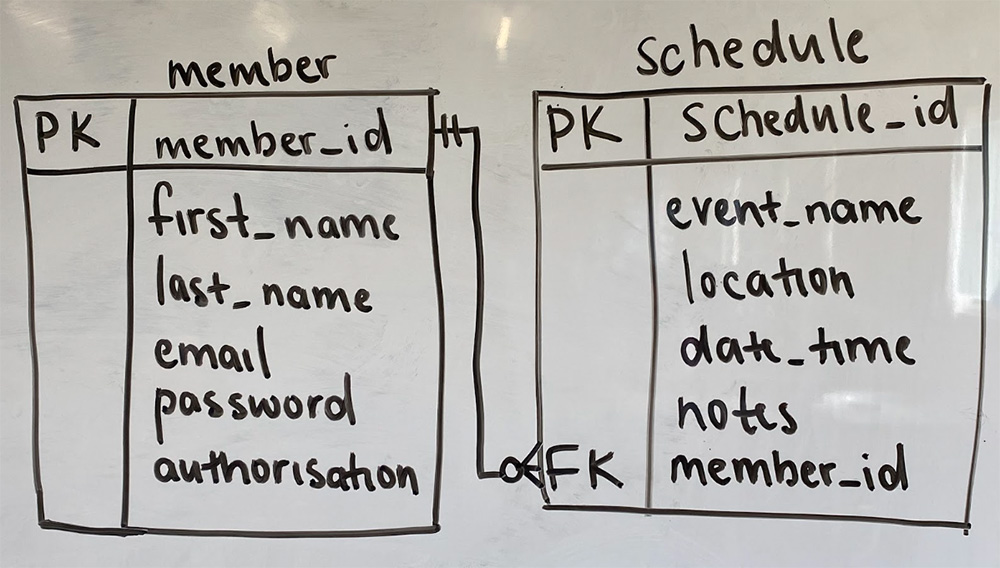 member
PK member_id
first_name
last_name
email
password
authorisation
schedule
PK schedule_id
event_name
location
date_time
notes
FK member_id